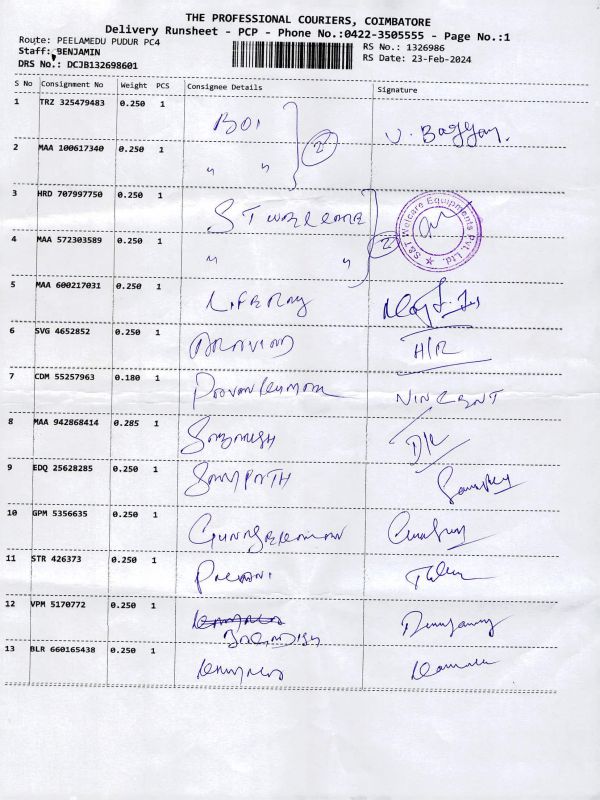 THE PROFESSIONAL COURIERS, COIMBATORE
Delivery Runsheet - PCP - Phone No.:0422-3505555 - Page No.:1
Route: PEELAMEDU PUDUR PC4
RS No.: 1326986
Staff: BENJAMIN
RS Date: 23-Feb-2024
DRS No.: DCJB132698601
S No Consignment No Weight PCS Consignee Details Signature
1 TRZ 325479483 0.250 1 BOI
2 MAA 100617340 0.250 1 " " 2
3 HRD 707997750 0.250 1
S&T Welcare Equipments Pvt. Ltd.
4 MAA 572303589 0.250 1 " " 2
5 MAA 600217031 0.250 1
6 SVG 4652852 0.250 1 ARAVIND H/R
7 CDM 55257963 0.180 1 VINCENT
8 MAA 942868414 0.285 1 D/R
9 EDQ 25628285 0.250 1 SAMPATH
10 GPM 5356635 0.250 1
11 STR 426373 0.250 1 PALANI
12 VPM 5170772 0.250 1
13 BLR 660165438 0.250 1